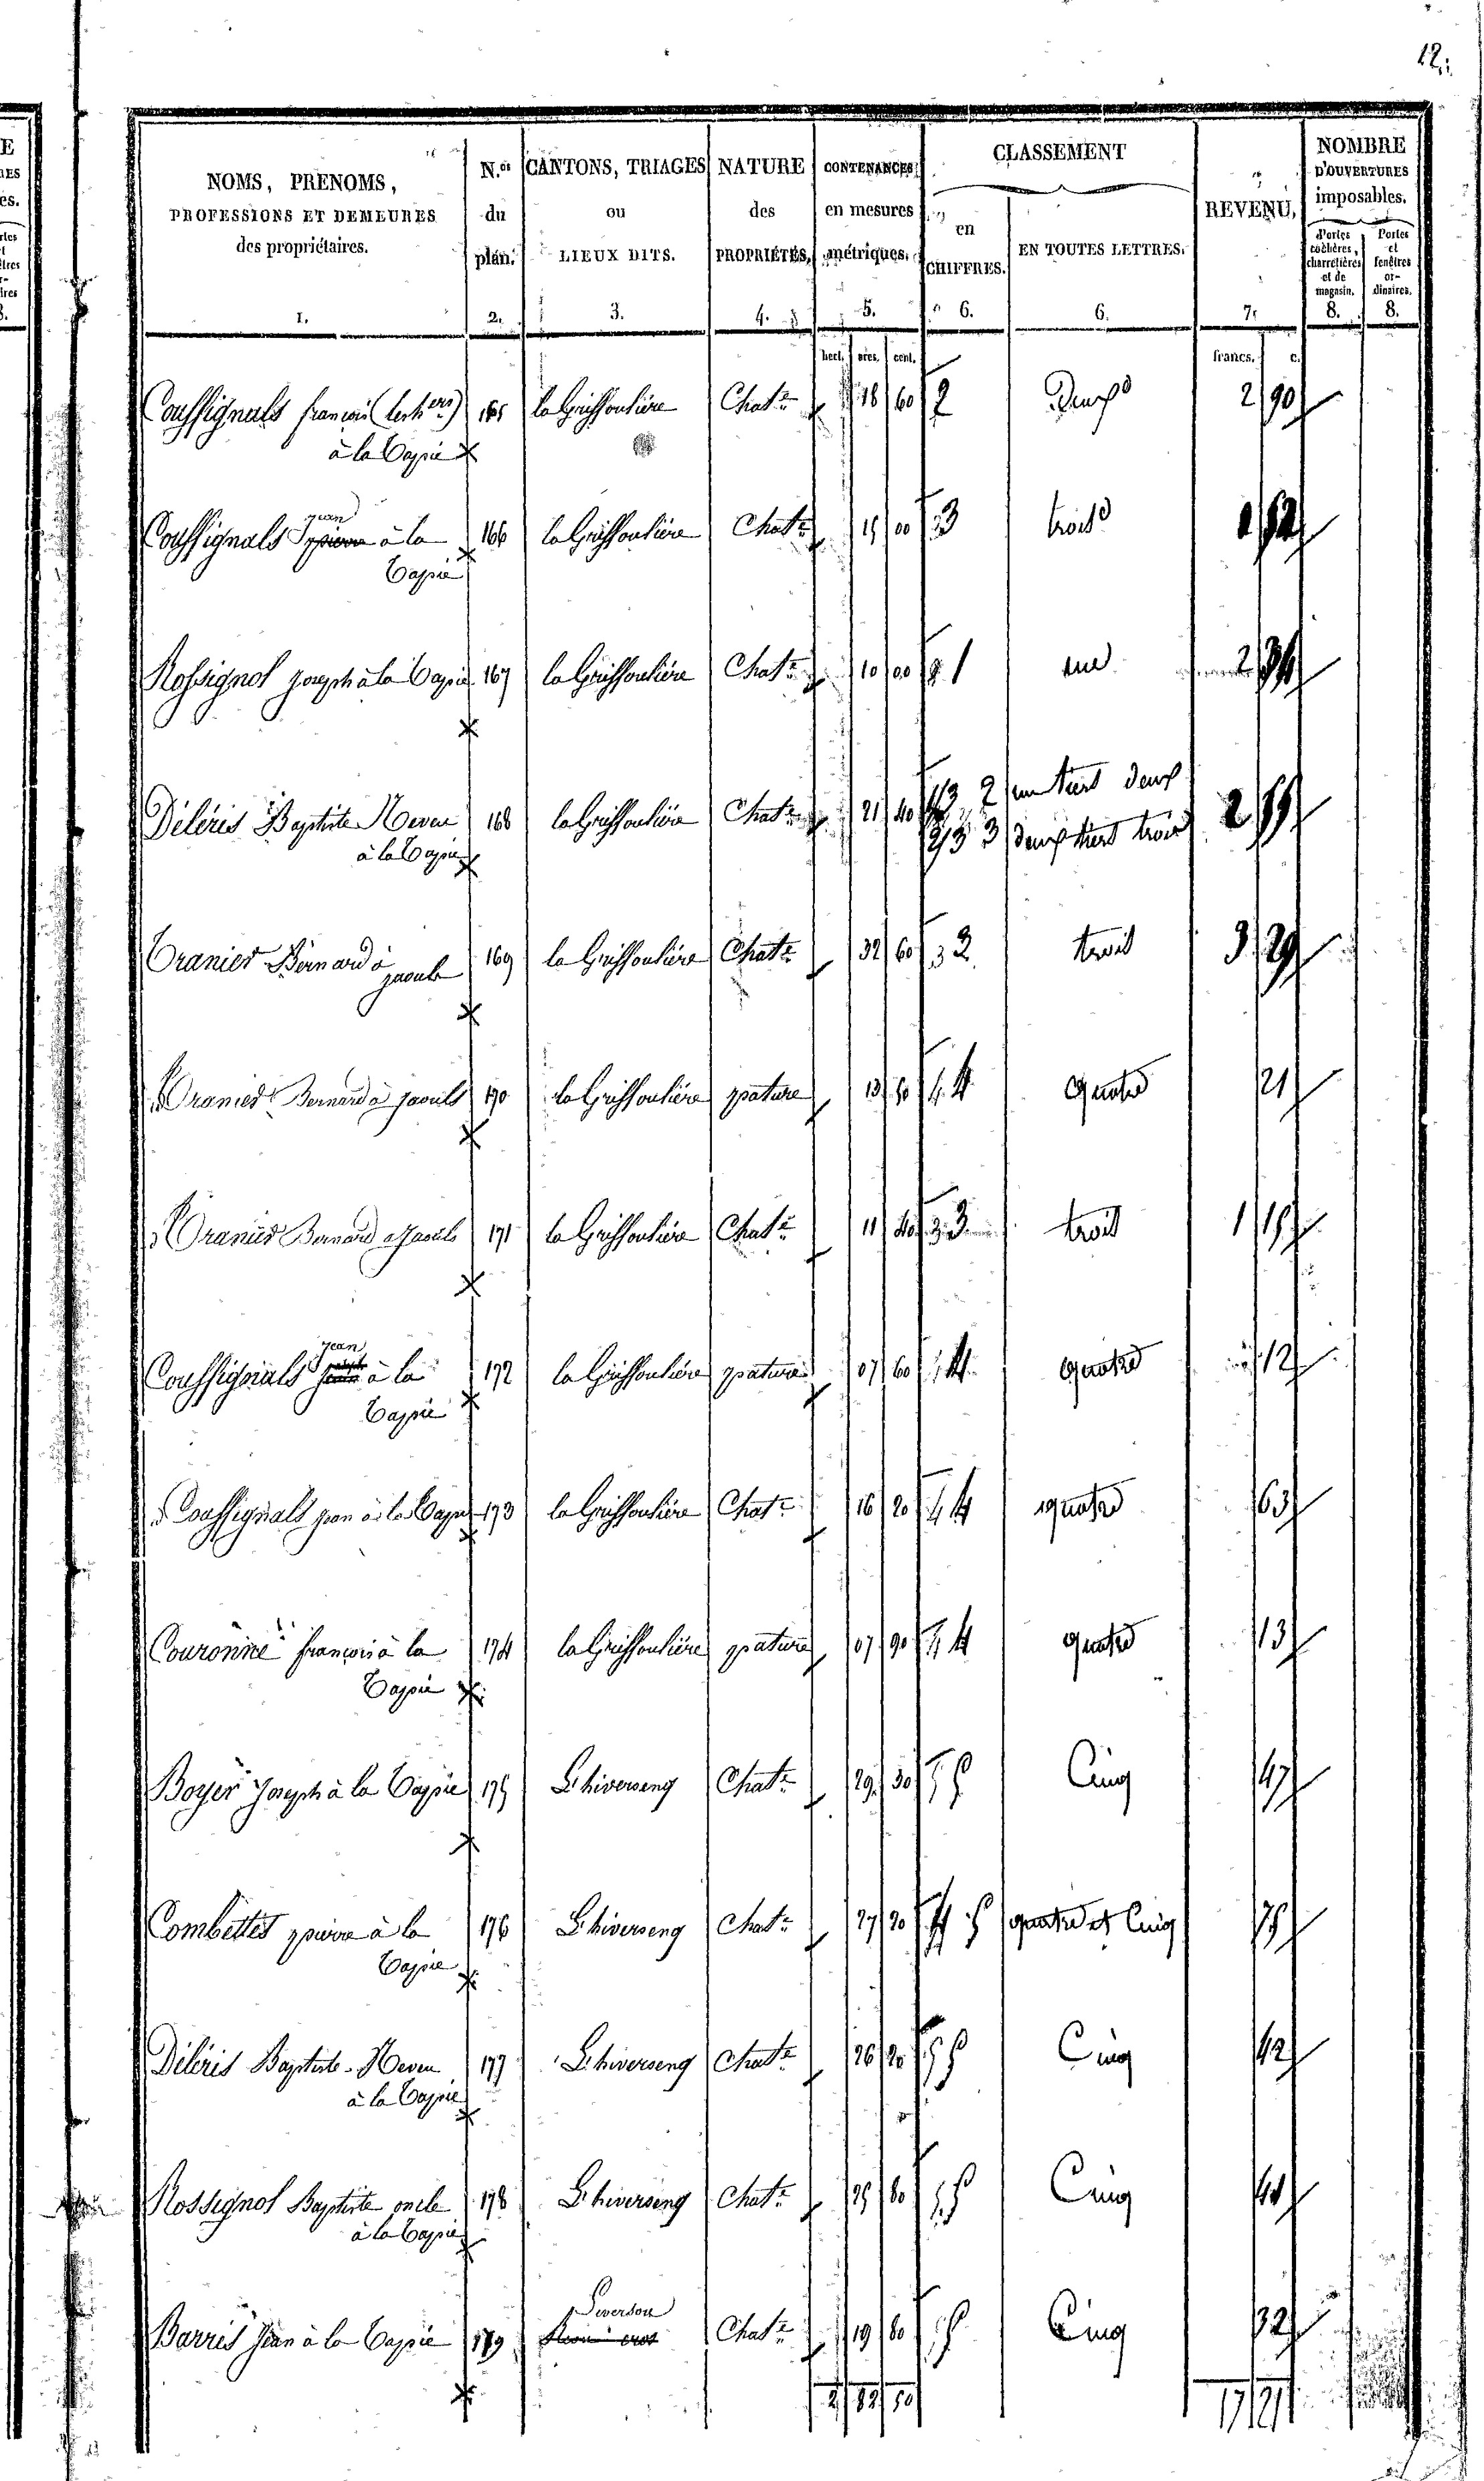 12.
NOMS, PRENOMS, PROFESSIONS ET DEMEURES des propriétaires. 1.
N.os du plan. 2.
CANTONS, TRIAGES ou LIEUX DITS. 3.
NATURE des PROPRIÉTÉS. 4.
CONTENANCES en mesures métriques. 5.
CLASSEMENT
en CHIFFRES. 6.
EN TOUTES LETTRES. 6.
REVENU. 7.
NOMBRE D'OUVERTURES imposables.
Portes cochères, charretières et de magasin. 8.
Portes et fenêtres ordinaires. 8.
hect. ares. cent. francs. c.
Couffignals françois (les hers) 165 la Griffoulière Chatre 18 60 2 Deux 2 90
à la Capie
jean
Couffignals pierre à la 166 la Griffoulière Chatre 15 00 3 trois 1 52
Capie
Rossignol joseph à la Capie 167 la Griffoulière Chatre 10 00 1 une 2
Déléris Baptiste Neveu 168 la Griffoulière Chatre 21 40 1/3 2 un tiers deux 2
à la Capie 2/3 3 deux tiers trois
Tranier Bernard à 169 la Griffoulière Chatre 32 60 3 trois 3 29
jaouls
Tranier Bernard à jaouls 170 la Griffoulière pature 13 50 4 quatre 21
Tranier Bernard à jaouls 171 la Griffoulière Chatre 11 40 3 trois 1 15
jean
Couffignals à la 172 la Griffoulière pature 07 60 4 quatre 12
Capie
Couffignals jean à la Capie 173 la Griffoulière Chatre 16 20 4 quatre 63
Couronne françois à la 174 la Griffoulière pature 07 90 4 quatre 13
Capie
Boyer Joseph à la Capie 175 L'hiverseng Chatre 29 30 5 Cinq 47
Combettes pierre à la 176 L'hiverseng Chatre 27 20 4 5 quatre et Cinq 75
Capie
Déléris Baptiste Neveu 177 L'hiverseng Chatre 26 20 5 Cinq 42
à la Capie
Rossignol Baptiste oncle 178 L'hiverseng Chatre 25 80 5 Cinq 41
à la Capie
Barris Jean à la Capie 179 Chatre 19 80 5 Cinq 32
2 82 50 17